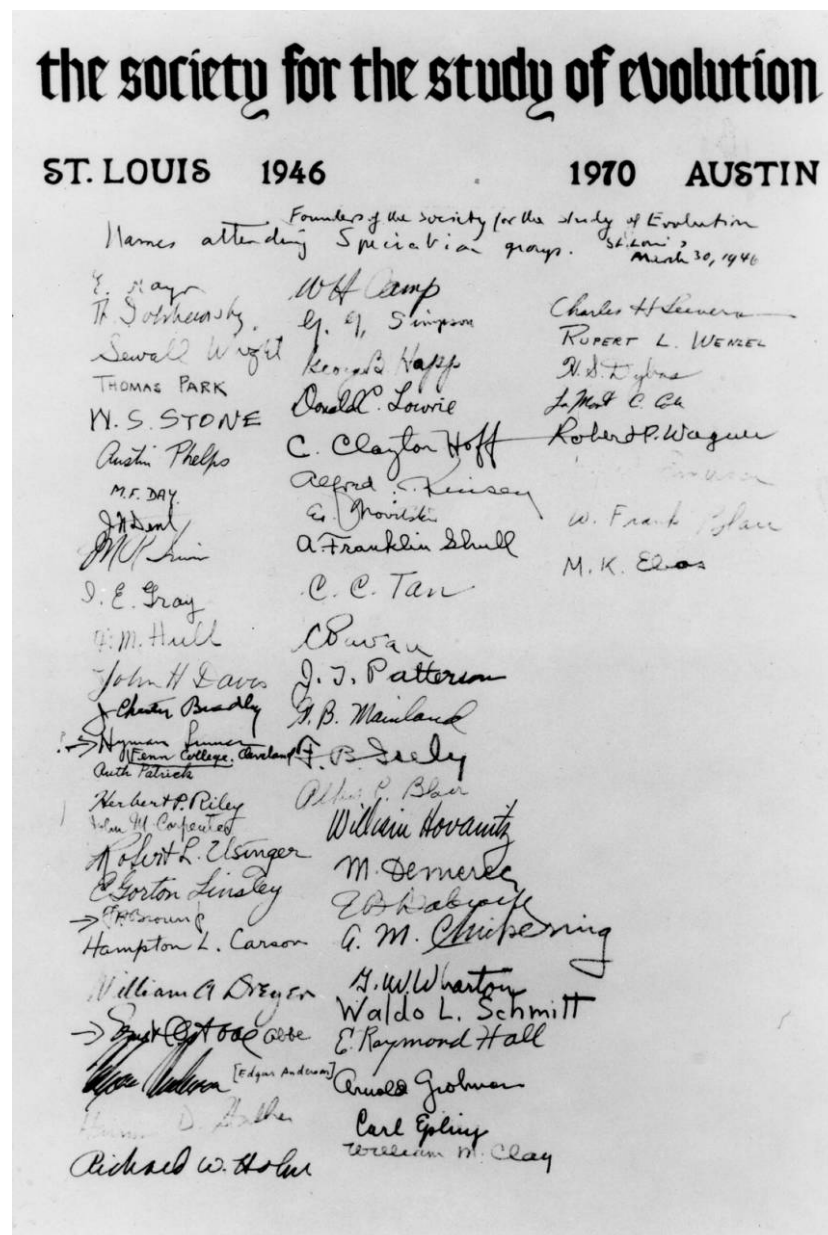 the society for the study of evolution
ST. LOUIS 1946 1970 AUSTIN
Founders of the society for the study of Evolution
Names attending Speciation groups. St. Louis
March 30, 1946
E. Mayr
Th Dobzhansky.
Sewall Wright
THOMAS PARK
W. S. STONE
Austin Phelps
M.F. DAY.
J N Dent
I. E. Gray
F. M. Hull
John H Davis
J. Chester Bradley
Hyman
Fenn College, Cleveland
Ruth Patrick
Herbert P. Riley
John M Carpenter
Robert L. Usinger
E Gorton Linsley
Brown
Hampton L. Carson
William A Dreyer
[Edgar Anderson]
D.
Richard W. Holm
WH Camp
G. G. Simpson
George B Happ
Donald C. Lowrie
C. Clayton Hoff
Alfred C. Kinsey
E. Novitski
A. Franklin Shull
C. C. Tan
C Pavan
J. T. Patterson
G. B. Mainland
Albert P. Blair
William Hovanitz
M. Demerec
A. M. Chickering
G. W. Wharton
Waldo L. Schmitt
E. Raymond Hall
Arnold Grobman
Carl Epling
William M. Clay
Charles H Seevers
RUPERT L. WENZEL
H. S. Dybas
Robert P. Wagner
W. Frank Blair
M. K. Elias